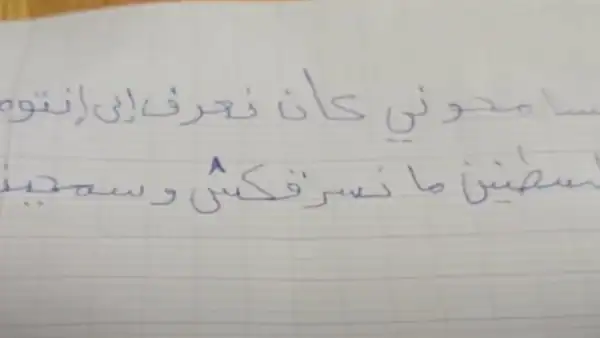 سامحوني كان نعرف إلي إنتوم
لسطينين ما نسرقكش وسمحين